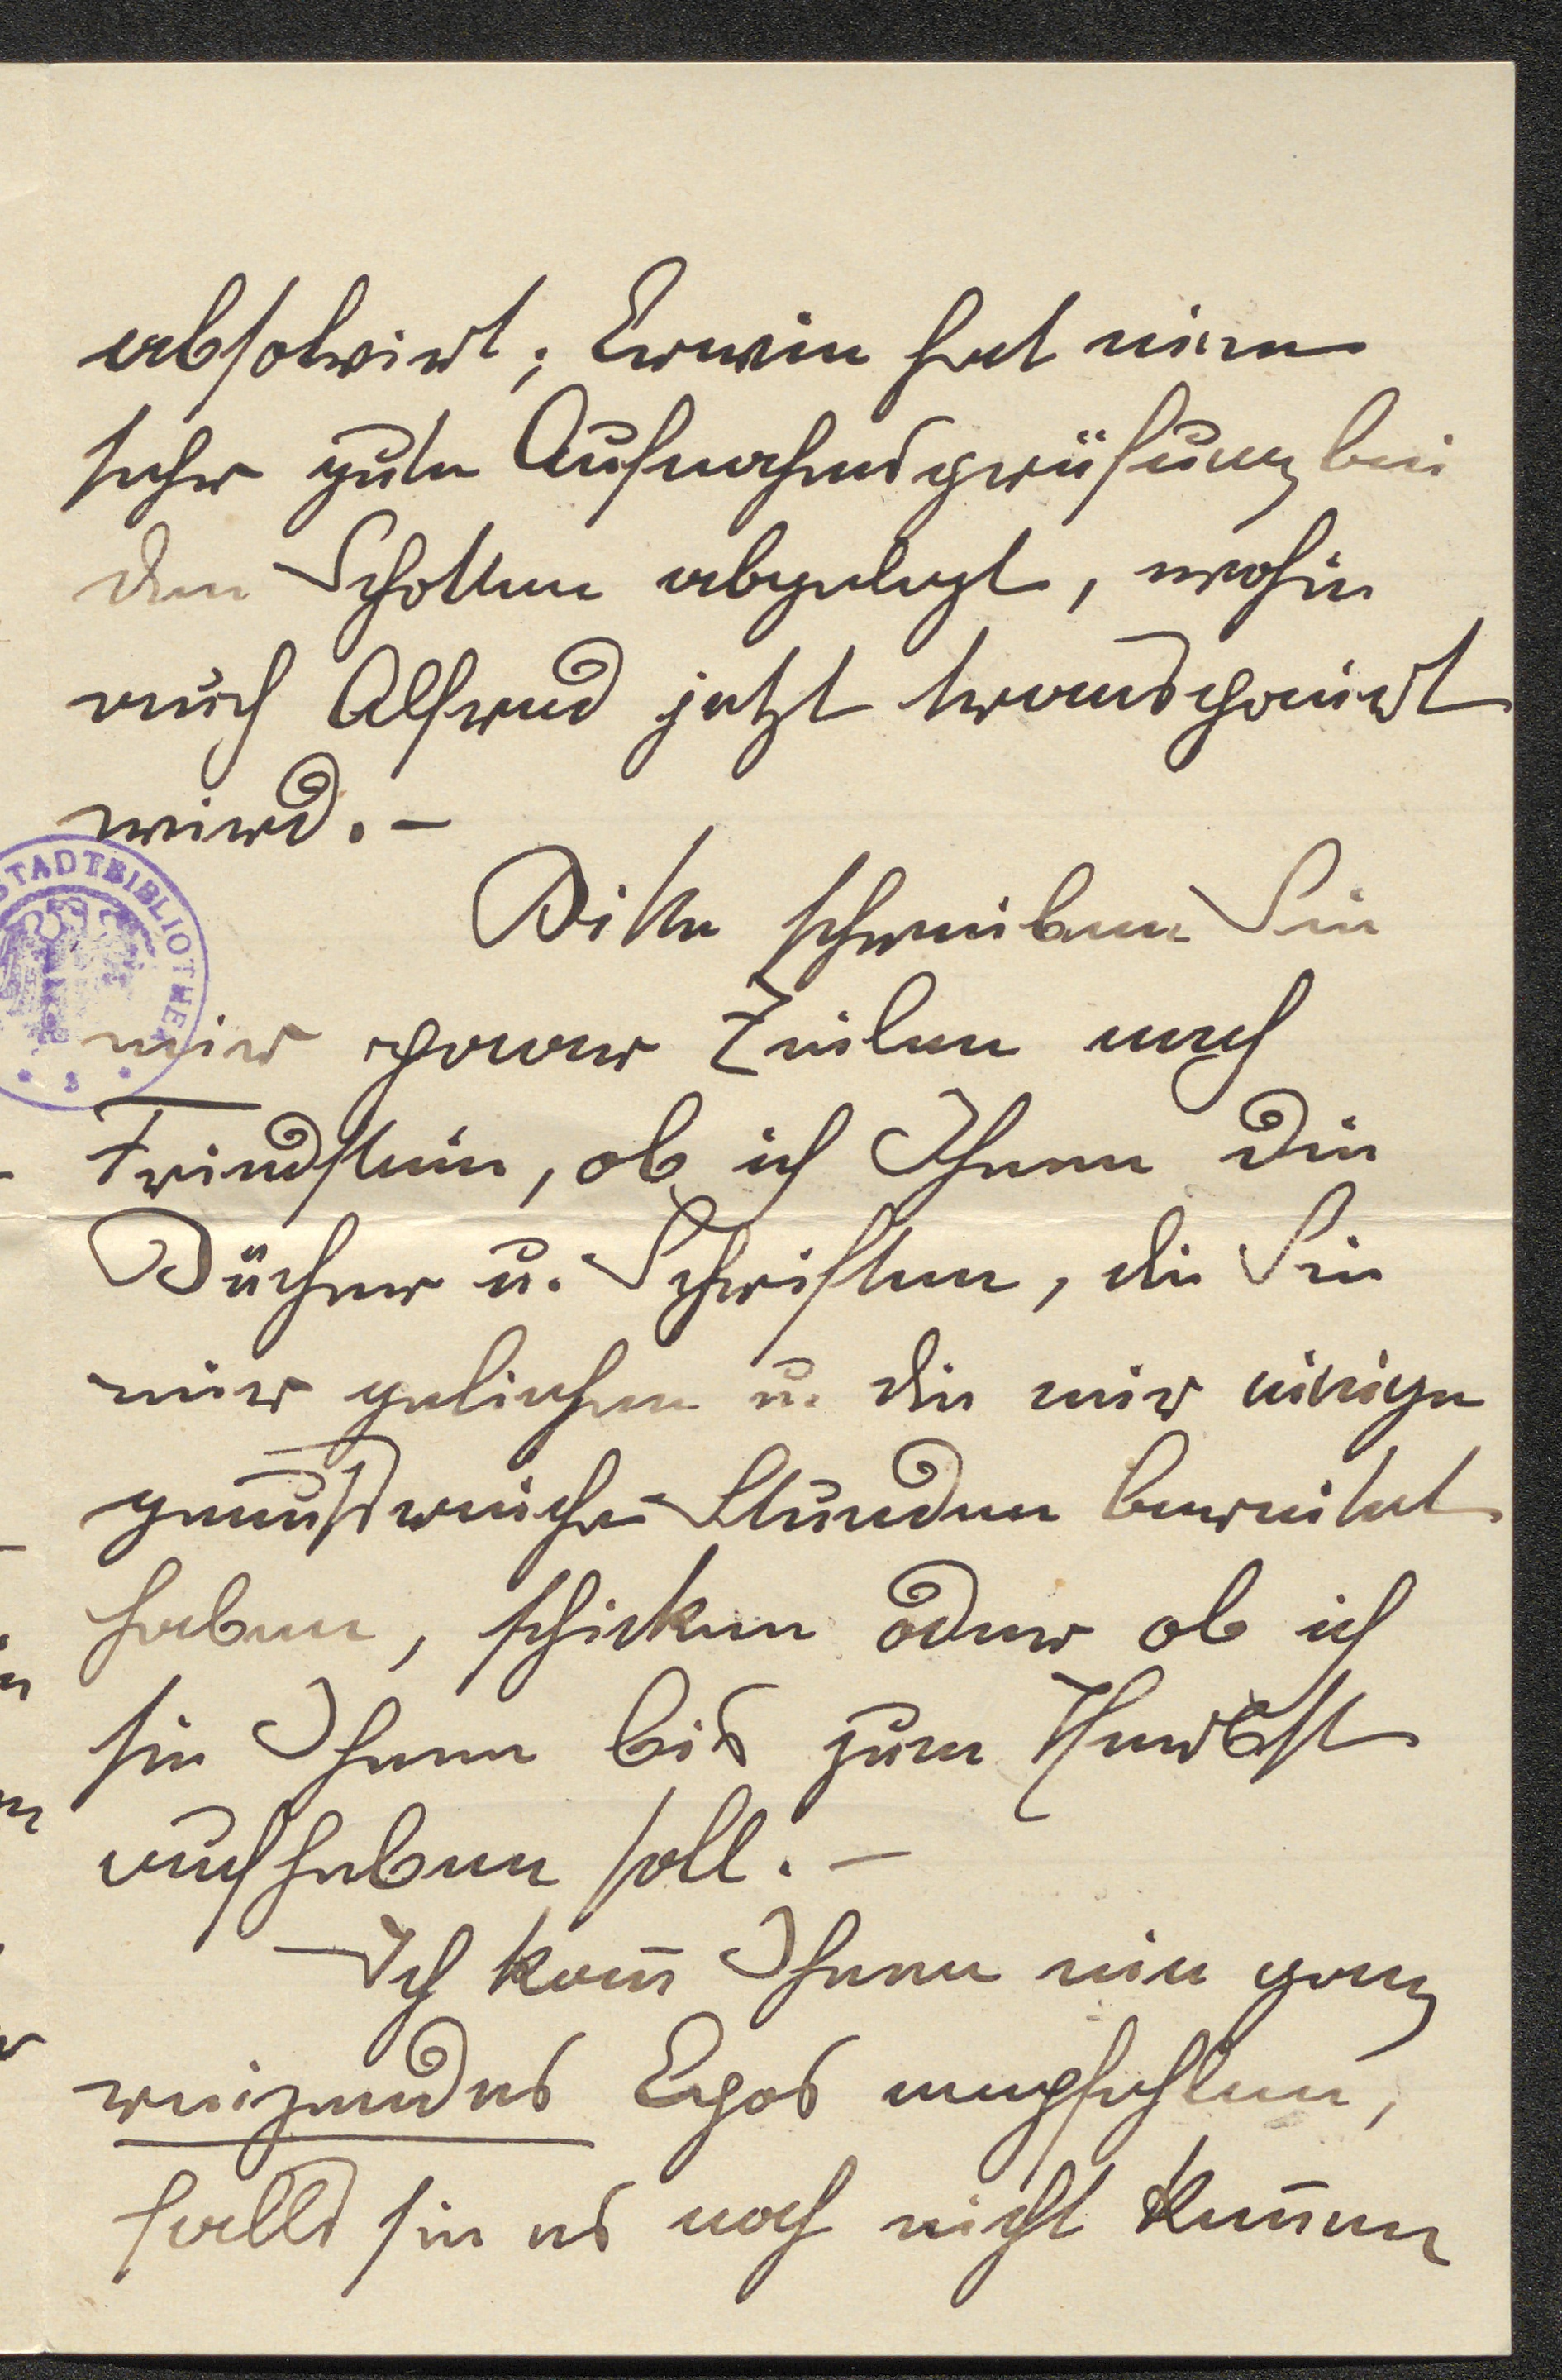 absolvirt; Erwin hat eine
sehr gute Aufnahmsprüfung bei
den Schotten abgelegt, wohin
auch Alfred jetzt transponirt
wird. –
Bitte schreiben Sie
mir paar Zeilen nach
Friedstein, ob ich Ihnen die
Bücher u. Schriften, die Sie
mir geliehen u. die mir einige
genußreiche Stunden bereitet
haben, schicken oder ob ich
sie Ihnen bis zum Herbst
aufheben soll. –
Ich kan̄ Ihnen ein ganz
reizendes Epos empfehlen,
falls sie es noch nicht ken̄en
STADTBIBLIOTHEK